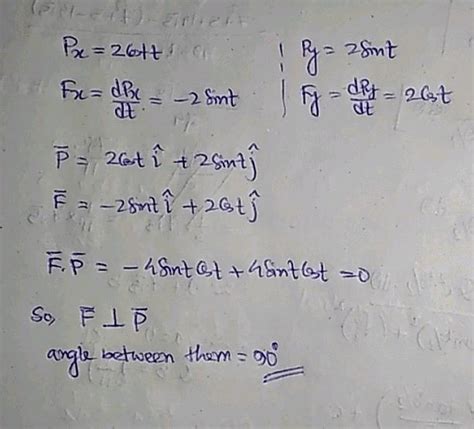 Px = 2Cost | Py = 2Sint
Fx = dPx/dt = -2Sint | Fy = dPy/dt = 2Cost
P̄ = 2Cost î + 2Sint ĵ
F̄ = -2Sint î + 2Cost ĵ
F̄.P̄ = -4SintCost + 4SintCost = 0
So, F̄ ⊥ P̄
angle between them = 90°